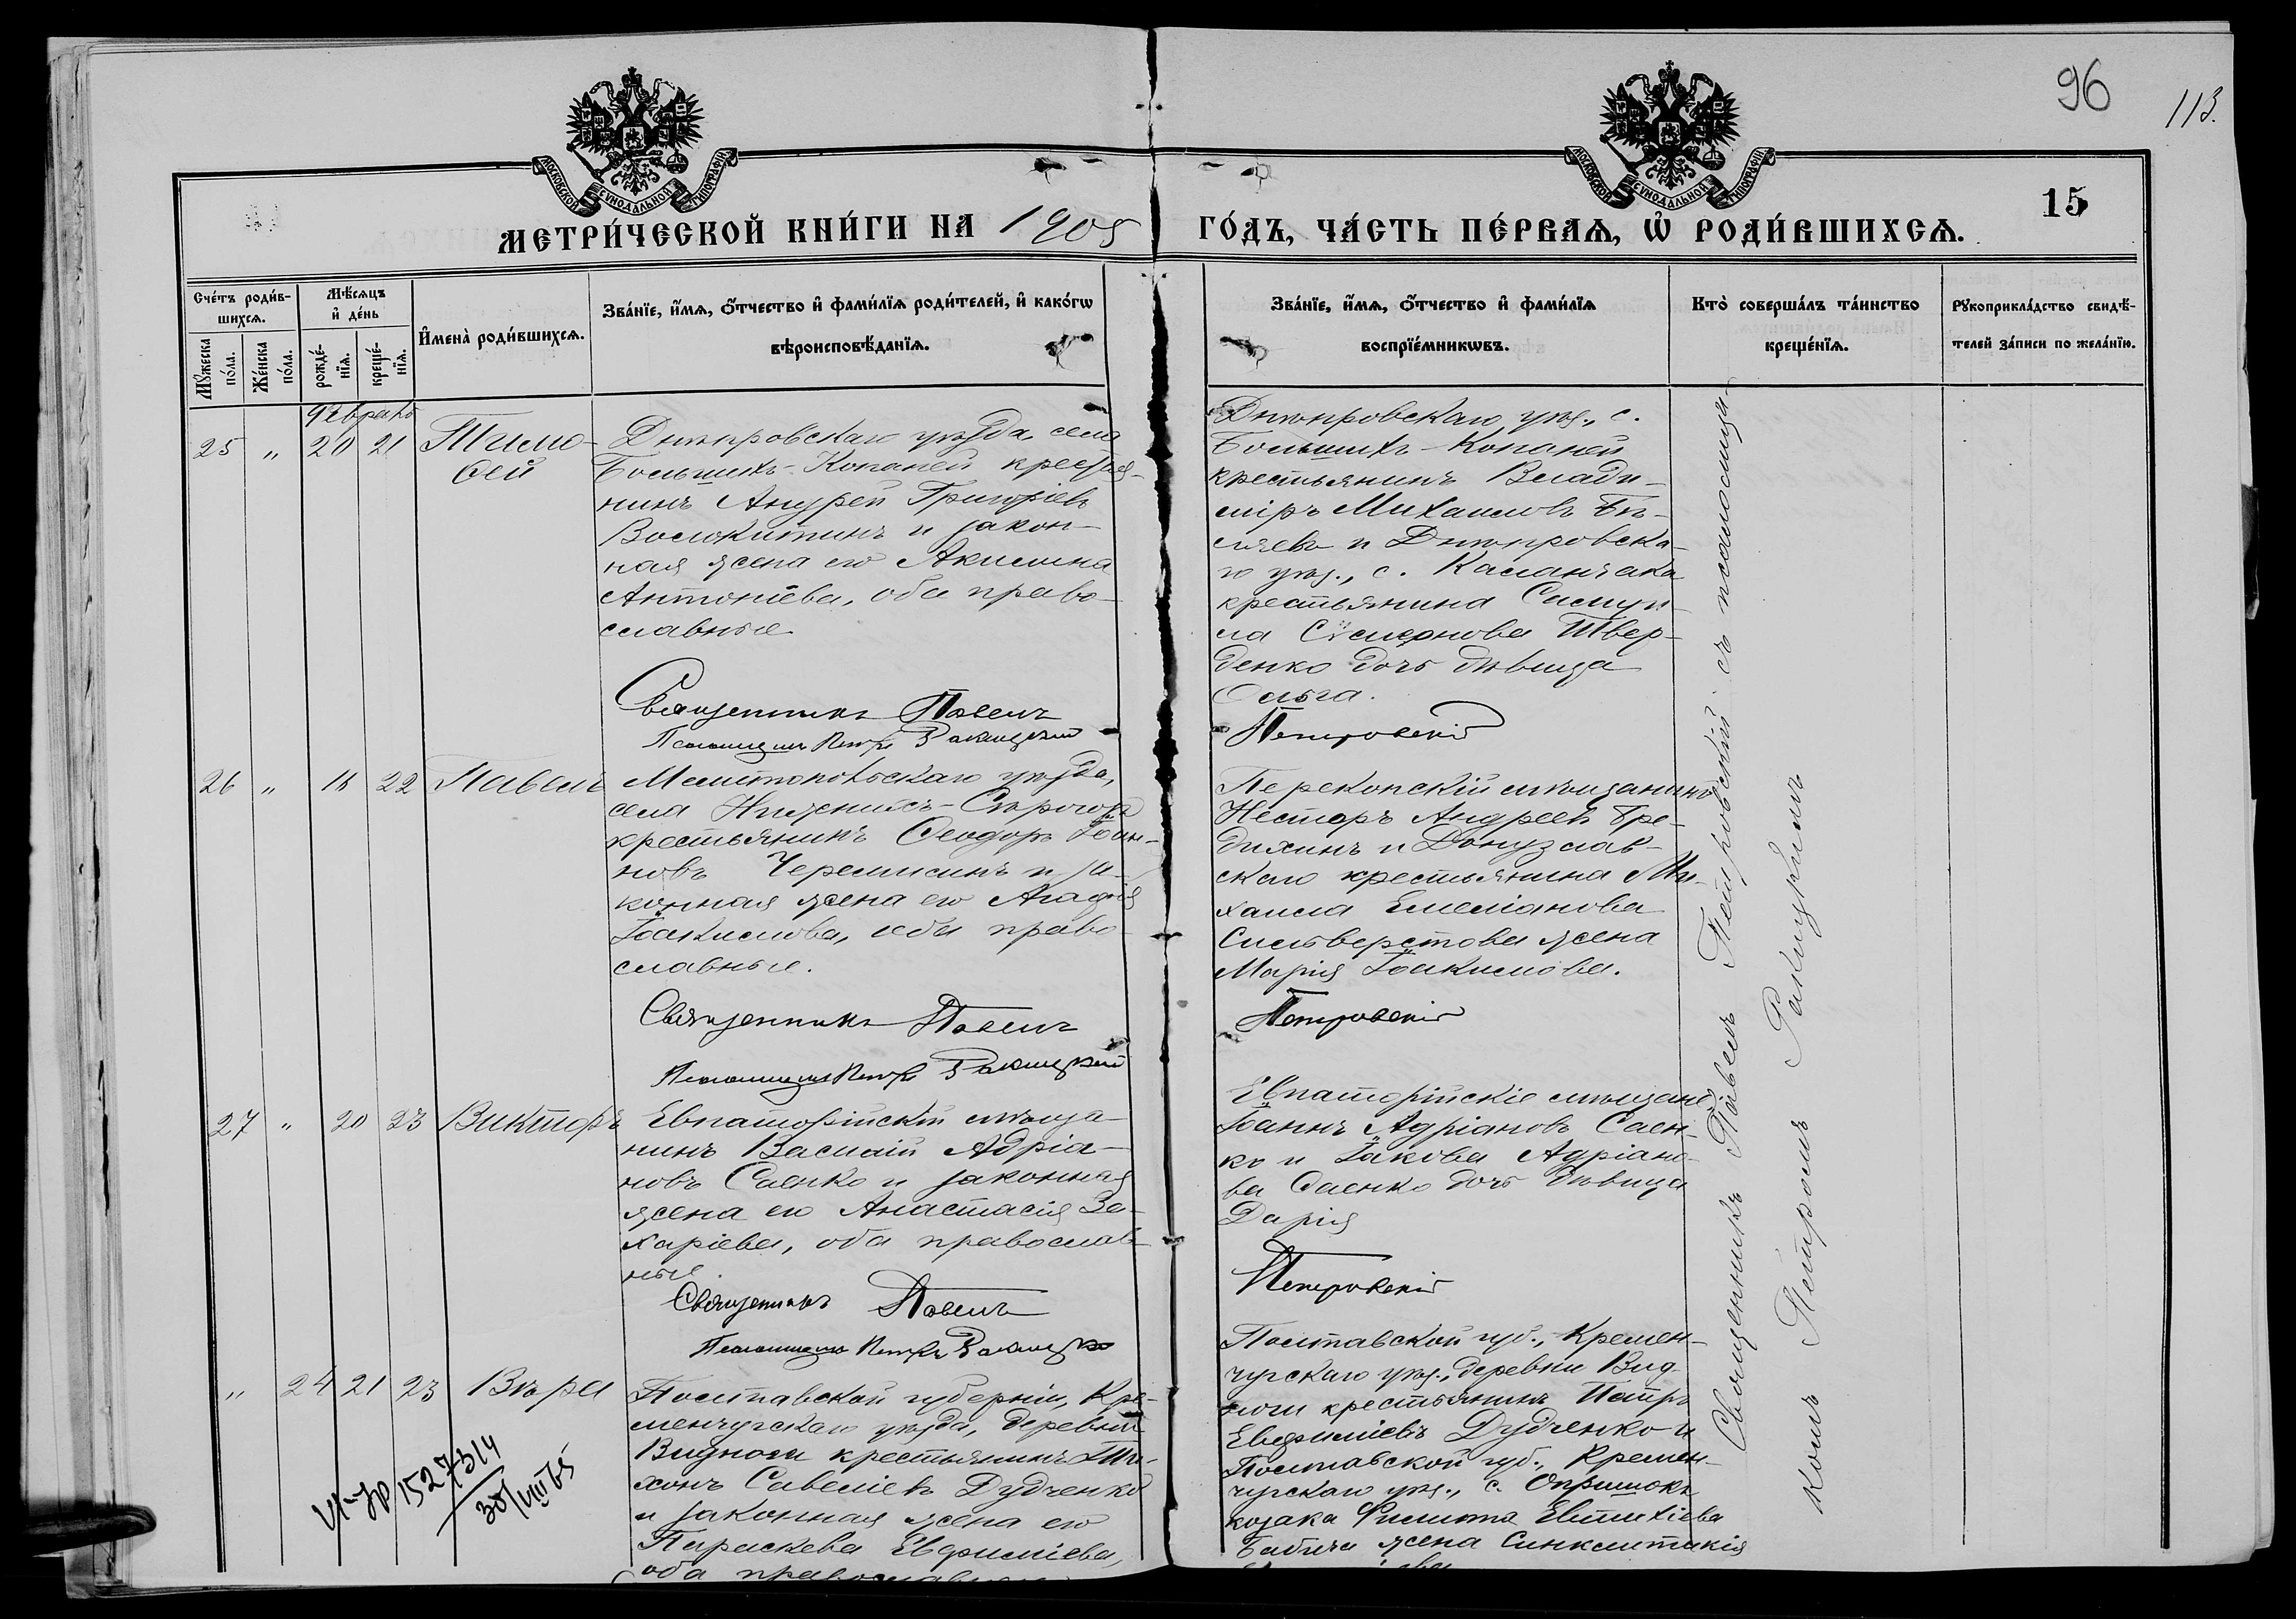 96
113.
МОСКОВСКОЙ СѴНОДАЛЬНОЙ ТИПОГРАФІИ
МОСКОВСКОЙ СѴНОДАЛЬНОЙ ТИПОГРАФІИ
15
МЕТРИ́ЧЕСКОЙ КНИ́ГИ НА 1905 ГО́ДЪ, ЧА́СТЬ ПЕ́РВАѦ, Ѽ РОДИ́ВШИХСѦ.
Сче́тъ роди́в-
шихсѧ.
Мꙋ́жеска по́ла.
Же́нска по́ла.
Мѣ́сѧцъ
и҆ де́нь
рожде́-
нїѧ.
креще́-
нїѧ.
И҆мена̀ роди́вшихсѧ.
Зва́нїе, и҆́мѧ, ѻ҆́тчество и҆ фами́лїѧ роди́телей, и҆ како́гѡ
вѣроисповѣ́данїѧ.
Зва́нїе, и҆́мѧ, ѻ҆́тчество и҆ фами́лїѧ
воспрїе́мникѡвъ.
Кто̀ соверша́лъ та́инство
креще́нїѧ.
Рꙋкоприкла́дство свидѣ́-
телей за́писи по жела́нїю.
Февраль
25 " 20 21 Тимо-
ѳей
Днѣпровскаго уѣзда, села
Большихъ-Копаней крестья-
нинъ Андрей Григоріевъ
Волокитинъ и закон-
ная жена его Акилина
Антоніева, оба право-
славные.
Священникъ Павелъ
Псаломщикъ Петръ Ракицкій
Днѣпровскаго уѣз., с.
Большихъ-Копаней
крестьянинъ Влади-
міръ Михаиловъ Бѣ-
ляевъ и Днѣпровска-
го уѣз., с. Каланчака
крестьянина Самуи-
ла Симеонова Твер-
денко дочь дѣвица
Ольга.
Петровскій
26 " 18 22 Павелъ
Мелитопольскаго уѣзда,
села Нижнихъ-Сѣрогозъ
крестьянинъ Ѳеодоръ Іоан-
новъ Черемисинъ и за-
конная жена его Агафія
Іоакимова, оба право-
славные.
Священникъ Павелъ
Псаломщикъ Петръ Ракицкій
Перекопскій мѣщанинъ
Несторъ Андреевъ Бре-
дихинъ и Донузлав-
скаго крестьянина Ми-
хаила Емеліанова
Сильверстова жена
Марія Іоакимова.
Петровскій
27 " 20 23 Викторъ
Евпаторійскій мѣща-
нинъ Василій Адріа-
новъ Саенко и законная
жена его Анастасія За-
харіева, оба православ-
ные.
Священникъ Павелъ
Псаломщикъ Петръ Ракицкій
Евпаторійскіе мѣщане:
Іоаннъ Адріановъ Саен-
ко и Іакова Адріано-
ва Саенко дочь дѣвица
Дарія
Петровскій
" 24 21 23 Вѣра
Полтавской губерніи, Кре-
менчугскаго уѣзда, деревни
Видноги крестьянинъ Ти-
хонъ Савеліевъ Дудченко
и законная жена его
Параскева Евфиміева,
оба православные
Полтавской губ., Кремен-
чугскаго уѣз., деревни Вид-
ноги крестьянинъ Петръ
Евфиміевъ Дудченко и
Полтавской губ., Кремен-
чугскаго уѣз., с. Опришокъ
козака Филиппа Евтихіева
Бабича жена Синклитикія
Священникъ Павелъ Петровскій съ псаломщи-
комъ Петромъ Ракицкимъ
1527314
30/VIII 65